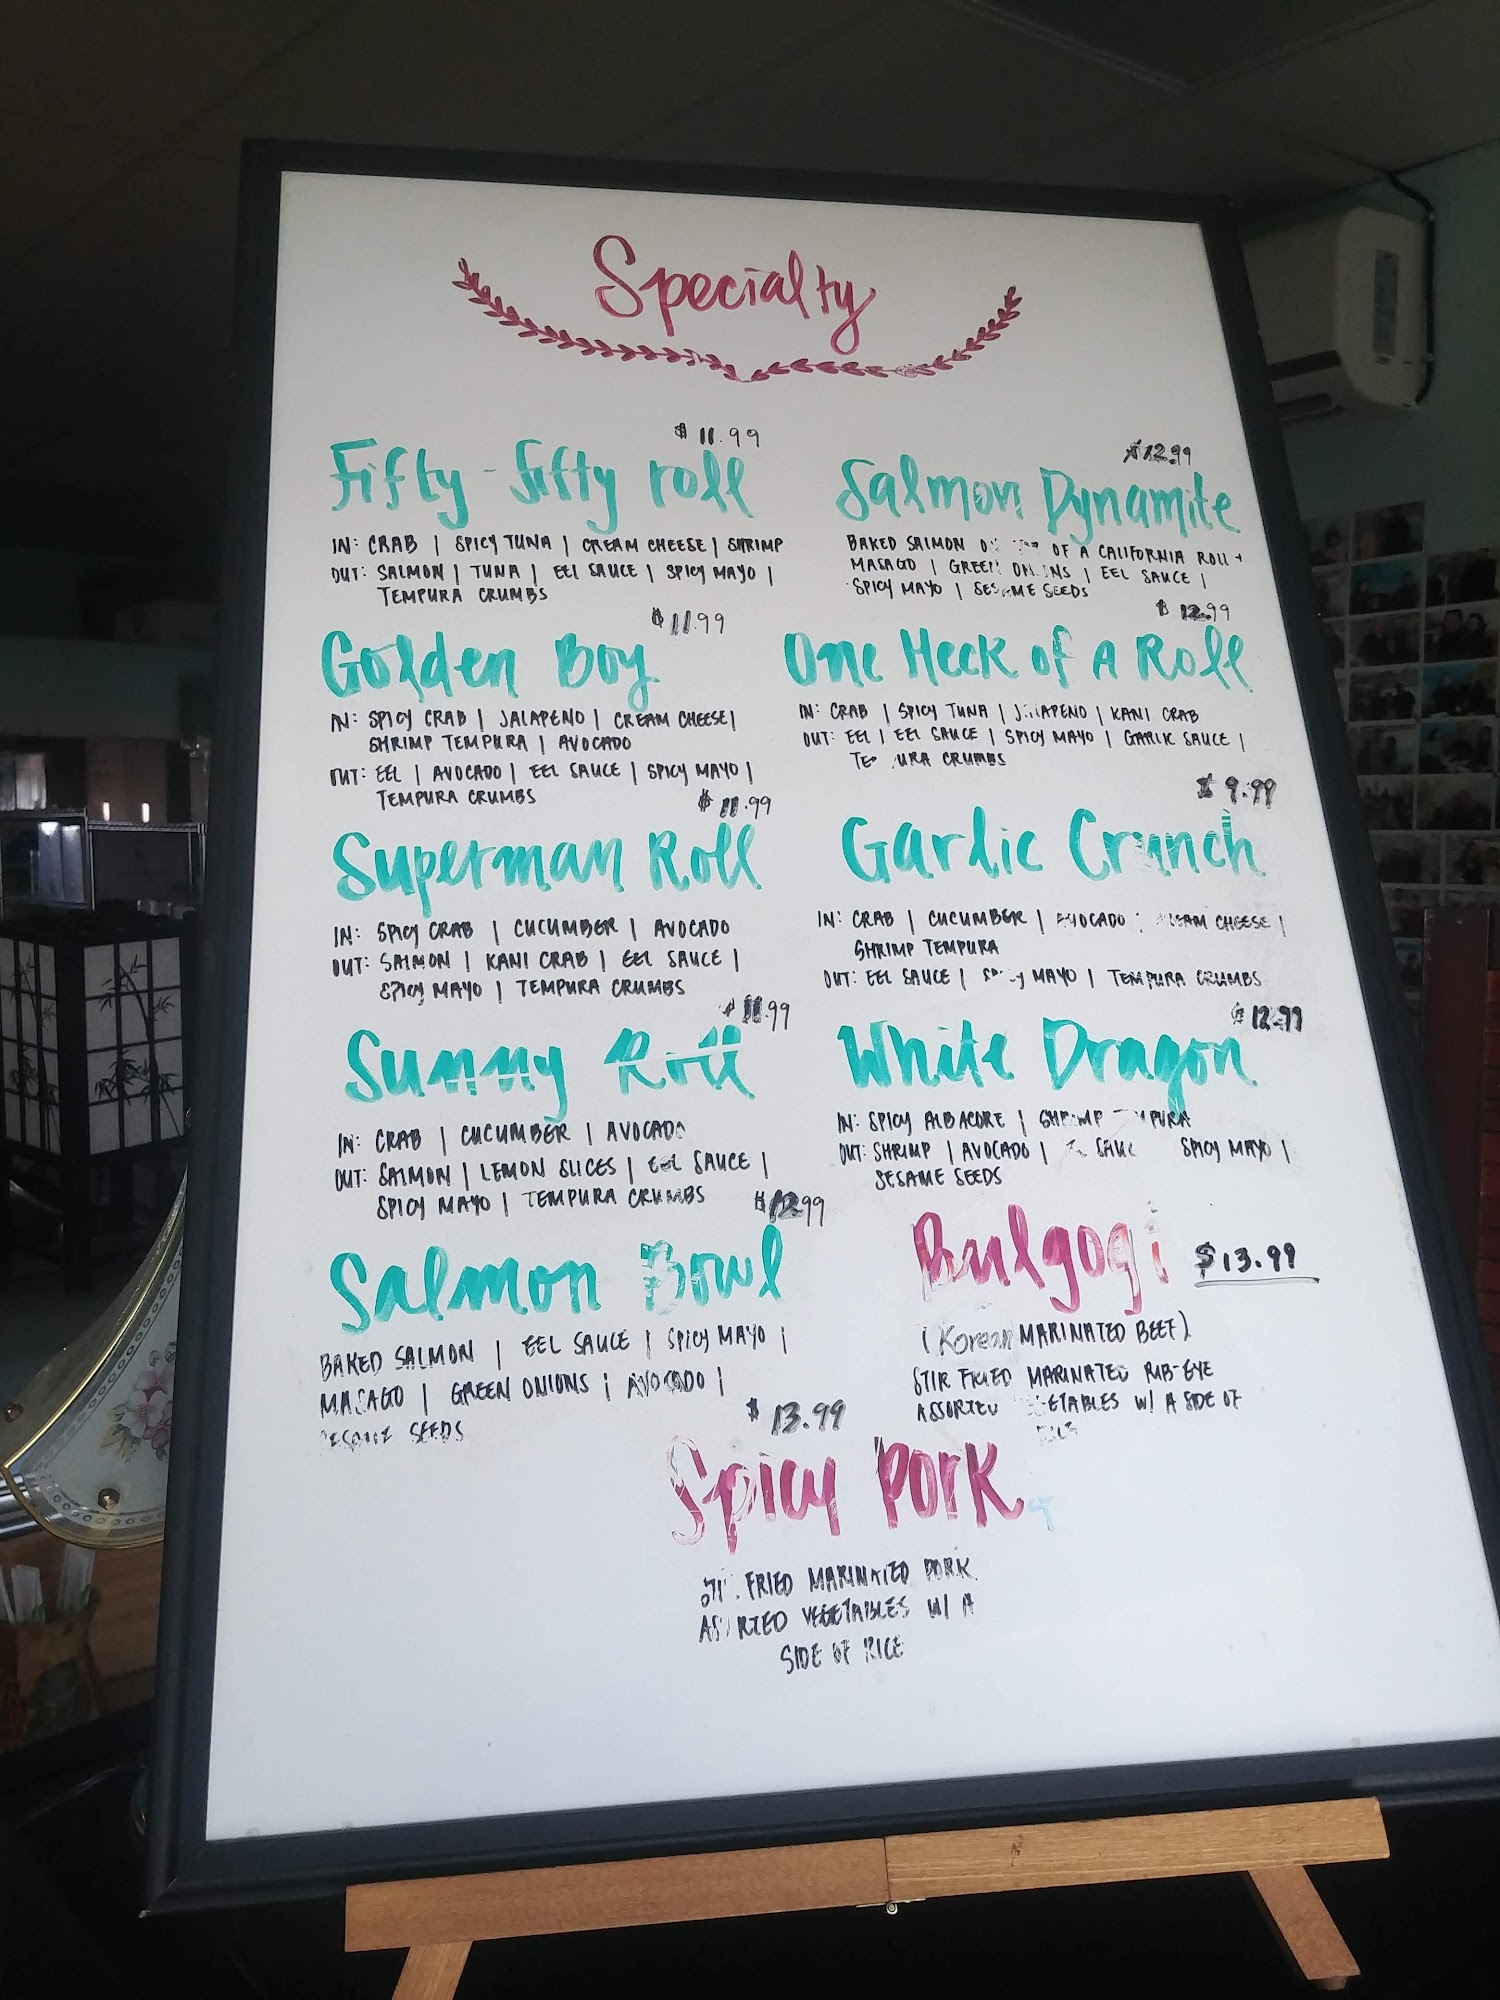 Specialty
$11.99
Fifty-fifty roll
IN: CRAB | SPICY TUNA | CREAM CHEESE | SHRIMP
OUT: SALMON | TUNA | EEL SAUCE | SPICY MAYO |
TEMPURA CRUMBS
$11.99
Golden Boy
IN: SPICY CRAB | JALAPENO | CREAM CHEESE |
SHRIMP TEMPURA | AVOCADO
OUT: EEL | AVOCADO | EEL SAUCE | SPICY MAYO |
TEMPURA CRUMBS
$11.99
Superman Roll
IN: SPICY CRAB | CUCUMBER | AVOCADO
OUT: SALMON | KANI CRAB | EEL SAUCE |
SPICY MAYO | TEMPURA CRUMBS
$11.99
Sunny Roll
IN: CRAB | CUCUMBER | AVOCADO
OUT: SALMON | LEMON SLICES | EEL SAUCE |
SPICY MAYO | TEMPURA CRUMBS
$12.99
Salmon Bowl
BAKED SALMON | EEL SAUCE | SPICY MAYO |
MASAGO | GREEN ONIONS | AVOCADO |
SESAME SEEDS
$12.99
Salmon Dynamite
BAKED SALMON OF A CALIFORNIA ROLL +
MASAGO | GREEN ONIONS | EEL SAUCE |
SPICY MAYO | SESAME SEEDS
$12.99
One Heck of A Roll
IN: CRAB | SPICY TUNA | JALAPENO | KANI CRAB
OUT: EEL | EEL SAUCE | SPICY MAYO | GARLIC SAUCE |
TEMPURA CRUMBS
$9.99
Garlic Crunch
IN: CRAB | CUCUMBER | AVOCADO | CREAM CHEESE |
SHRIMP TEMPURA
OUT: EEL SAUCE | SPICY MAYO | TEMPURA CRUMBS
$12.99
White Dragon
IN: SPICY ALBACORE | SHRIMP TEMPURA
OUT: SHRIMP | AVOCADO | SAUCE SPICY MAYO |
SESAME SEEDS
Bulgogi $13.99
(Korean MARINATED BEEF)
STIR FRIED MARINATED RIB-EYE
ASSORTED VEGETABLES W/ A SIDE OF
RICE
$13.99
Spicy Pork
STIR FRIED MARINATED PORK
ASSORTED VEGETABLES W/ A
SIDE OF RICE